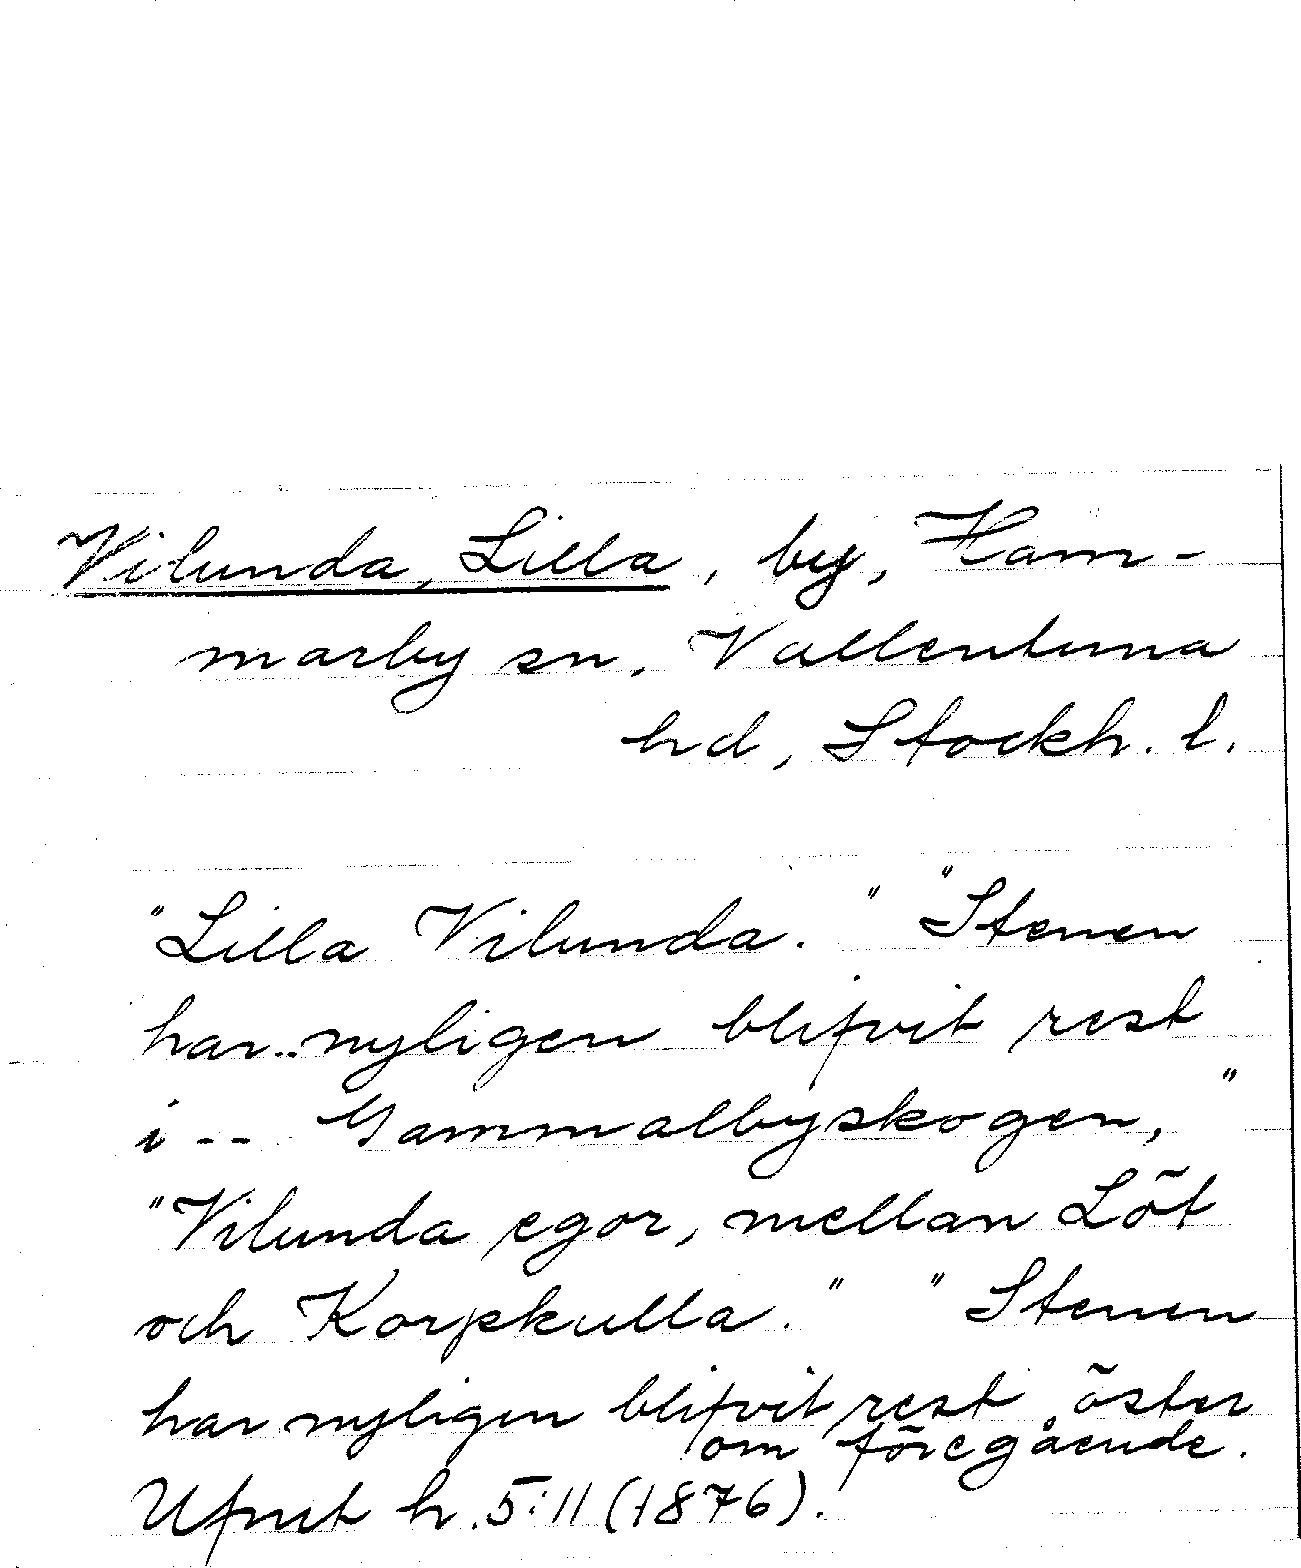 Vilunda, Lilla, by, Ham-
marby sn, Vallentuna
hd, Stockh. l.
"Lilla Vilunda." "Stenen
har.. nyligen blifvit rest
i -- Gammalbyskogen,"
"Vilunda egor, mellan Löt
och Korpkulla." "Stenen
har nyligen blifvit rest öster
om föregående.
Ufmt h. 5:11 (1876).